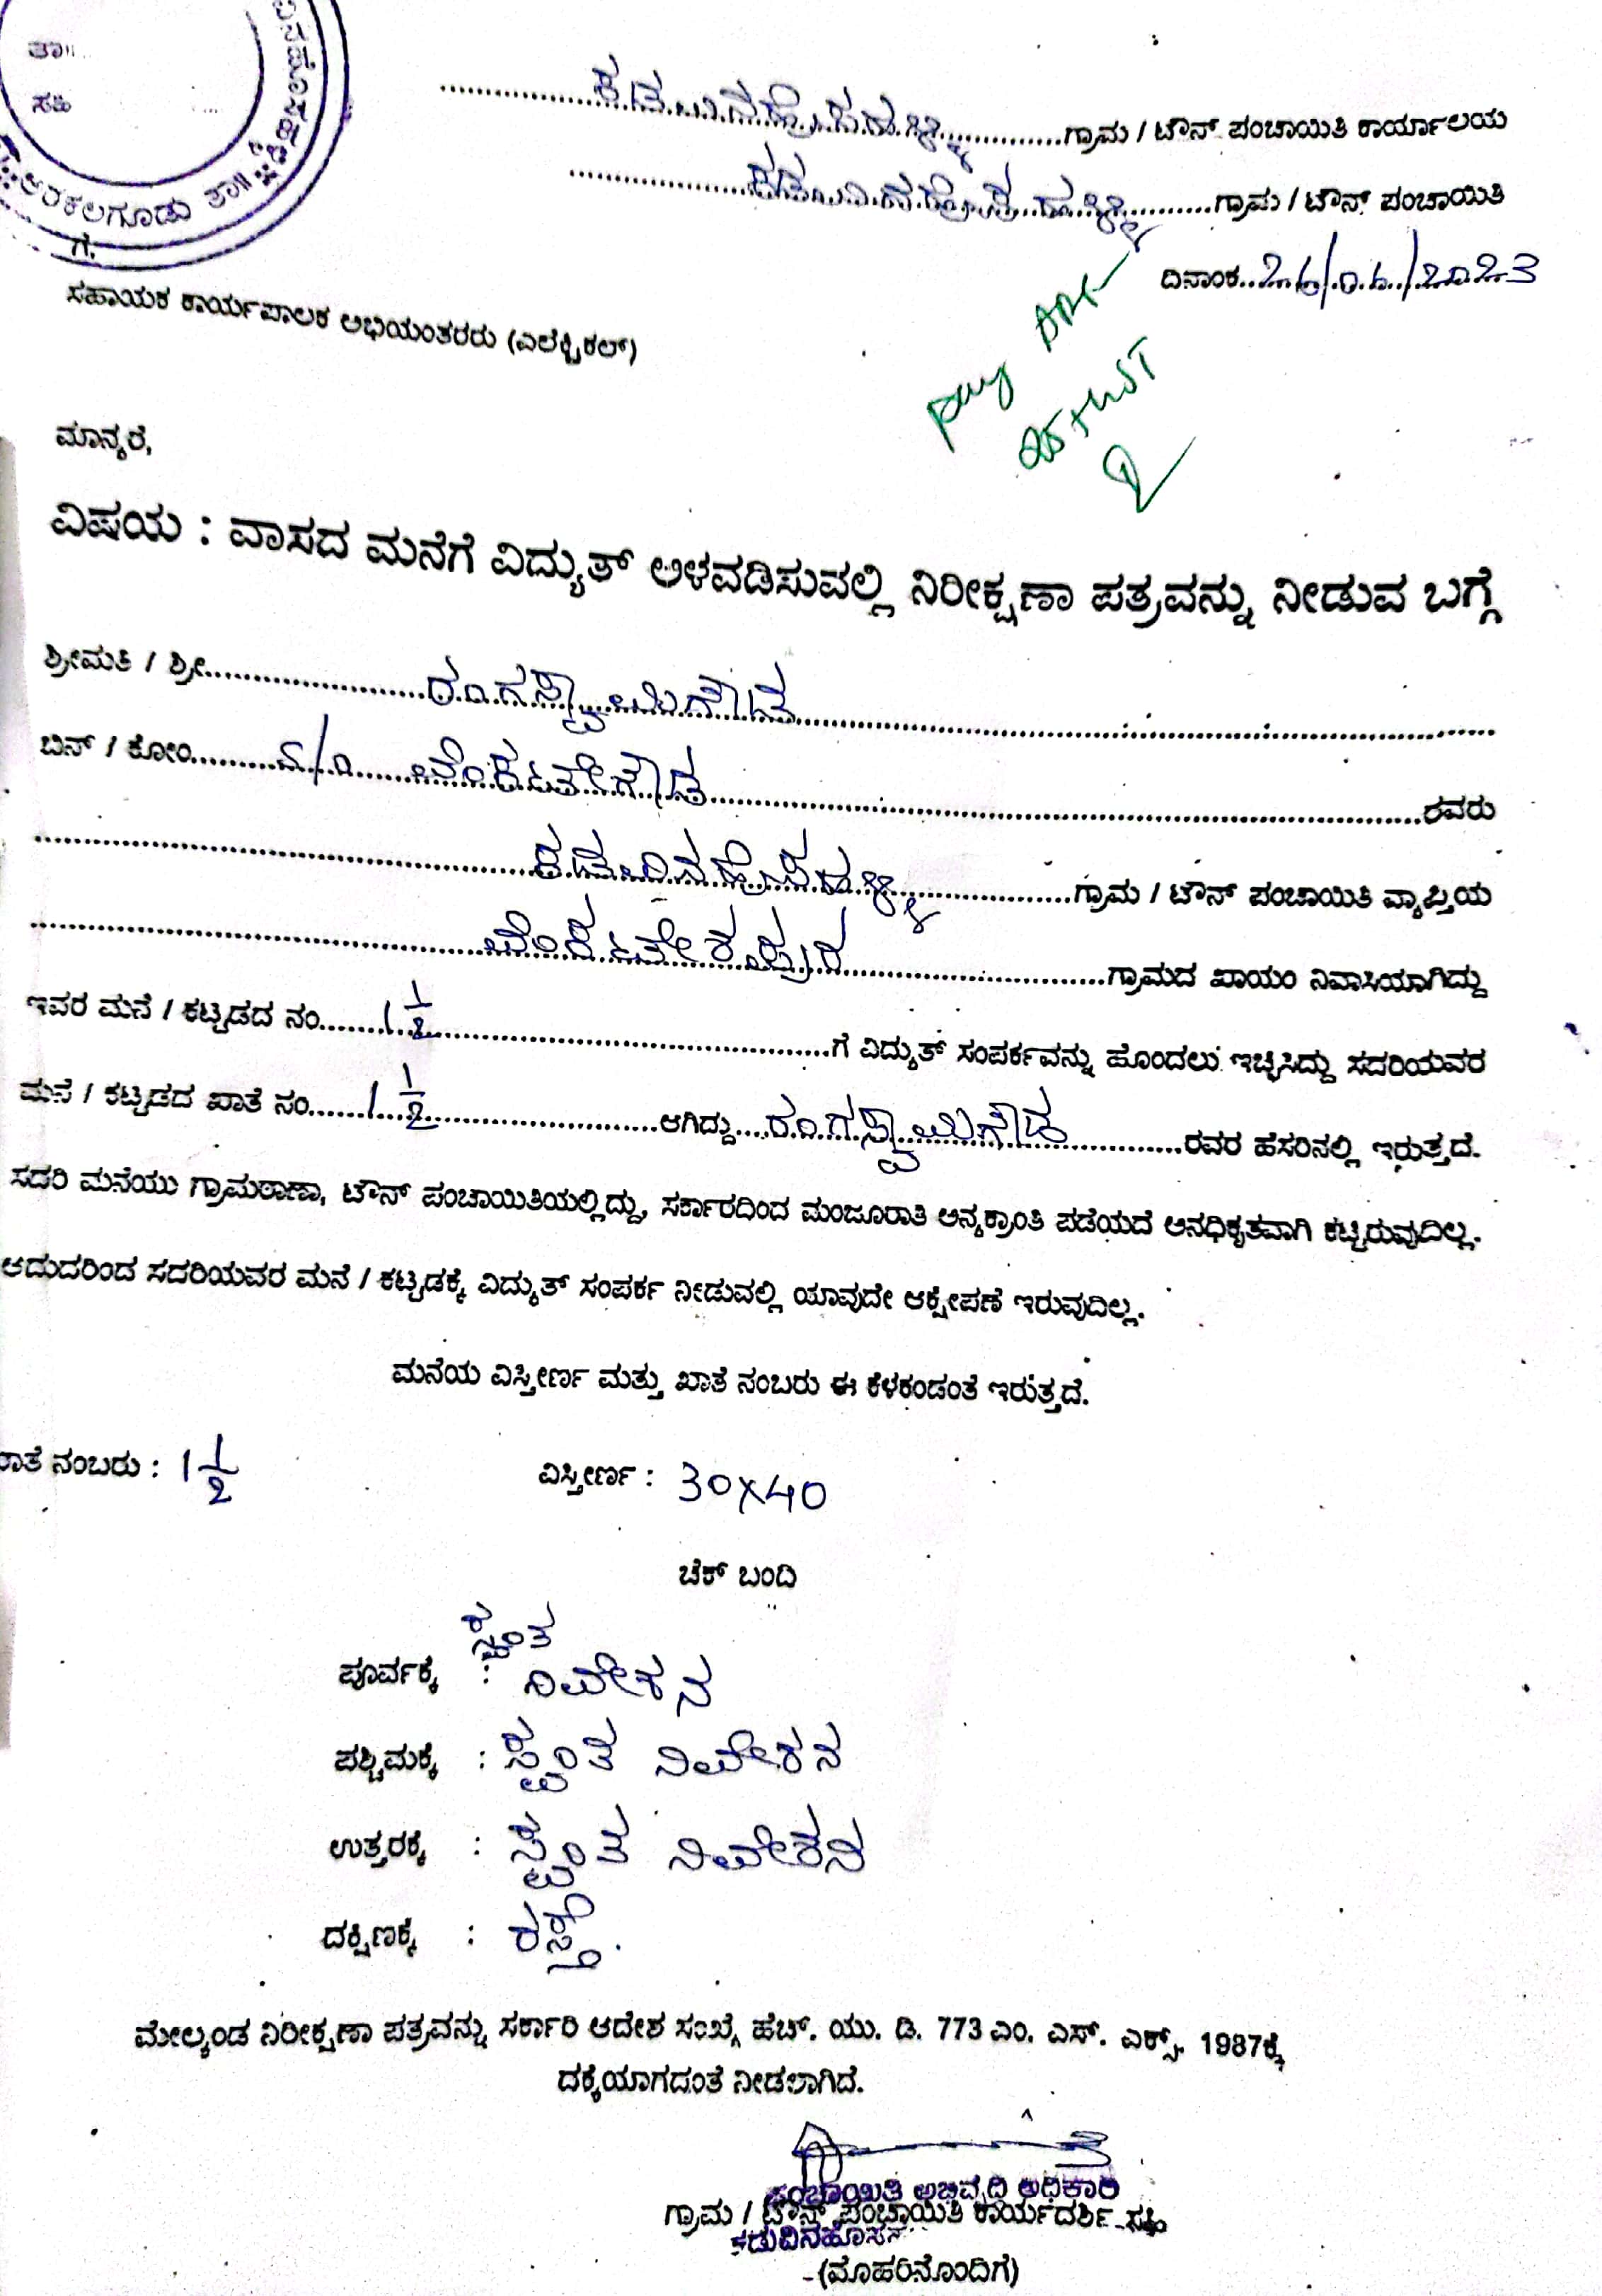 ತಾ॥
ಸಹಿ
ಅರಕಲಗೂಡು ತಾ॥
ಕಡುವಿನಹೊಸಹಳ್ಳಿ ಗ್ರಾಮ / ಟೌನ್ ಪಂಚಾಯಿತಿ ಕಾರ್ಯಾಲಯ
ಕಡುವಿನಹೊಸಹಳ್ಳಿ ಗ್ರಾಮ / ಟೌನ್ ಪಂಚಾಯಿತಿ
ದಿನಾಂಕ..26/06/2023
ಗೆ.
ಸಹಾಯಕ ಕಾರ್ಯಪಾಲಕ ಅಭಿಯಂತರರು (ಎಲೆಕ್ಟ್ರಿಕಲ್)
pay
ಮಾನ್ಯರೆ,
ವಿಷಯ : ವಾಸದ ಮನೆಗೆ ವಿದ್ಯುತ್ ಅಳವಡಿಸುವಲ್ಲಿ ನಿರೀಕ್ಷಣಾ ಪತ್ರವನ್ನು ನೀಡುವ ಬಗ್ಗೆ
ಶ್ರೀಮತಿ / ಶ್ರೀ ರಂಗಸ್ವಾಮಿಗೌಡ
ಬಿನ್ / ಕೋಂ S/o ವೆಂಕಟೇಗೌಡ ರವರು
ಕಡುವಿನಹೊಸಹಳ್ಳಿ ಗ್ರಾಮ / ಟೌನ್ ಪಂಚಾಯಿತಿ ವ್ಯಾಪ್ತಿಯ
ವೆಂಕಟೇಶಪುರ ಗ್ರಾಮದ ಖಾಯಂ ನಿವಾಸಿಯಾಗಿದ್ದು
ಇವರ ಮನೆ / ಕಟ್ಟಡದ ನಂ. 1 1/2 ಗೆ ವಿದ್ಯುತ್ ಸಂಪರ್ಕವನ್ನು ಹೊಂದಲು ಇಚ್ಛಿಸಿದ್ದು ಸದರಿಯವರ
ಮನೆ / ಕಟ್ಟಡದ ಖಾತೆ ನಂ. 1 1/2 ಆಗಿದ್ದು ರಂಗಸ್ವಾಮಿಗೌಡ ರವರ ಹೆಸರಿನಲ್ಲಿ ಇರುತ್ತದೆ.
ಸದರಿ ಮನೆಯು ಗ್ರಾಮಠಾಣಾ, ಟೌನ್ ಪಂಚಾಯಿತಿಯಲ್ಲಿದ್ದು, ಸರ್ಕಾರದಿಂದ ಮಂಜೂರಾತಿ ಅನ್ಯಕ್ರಾಂತಿ ಪಡೆಯದೆ ಅನಧಿಕೃತವಾಗಿ ಕಟ್ಟಿರುವುದಿಲ್ಲ.
ಆದುದರಿಂದ ಸದರಿಯವರ ಮನೆ / ಕಟ್ಟಡಕ್ಕೆ ವಿದ್ಯುತ್ ಸಂಪರ್ಕ ನೀಡುವಲ್ಲಿ ಯಾವುದೇ ಆಕ್ಷೇಪಣೆ ಇರುವುದಿಲ್ಲ.
ಮನೆಯ ವಿಸ್ತೀರ್ಣ ಮತ್ತು ಖಾತೆ ನಂಬರು ಈ ಕೆಳಕಂಡಂತೆ ಇರುತ್ತದೆ.
ಖಾತೆ ನಂಬರು : 1 1/2 ವಿಸ್ತೀರ್ಣ : 30X40
ಚೆಕ್ ಬಂದಿ
ಪೂರ್ವಕ್ಕೆ : ಸ್ವಂತ ನಿವೇಶನ
ಪಶ್ಚಿಮಕ್ಕೆ : ಸ್ವಂತ ನಿವೇಶನ
ಉತ್ತರಕ್ಕೆ : ಸ್ವಂತ ನಿವೇಶನ
ದಕ್ಷಿಣಕ್ಕೆ : ರಸ್ತೆ.
ಮೇಲ್ಕಂಡ ನಿರೀಕ್ಷಣಾ ಪತ್ರವನ್ನು ಸರ್ಕಾರಿ ಆದೇಶ ಸಂಖ್ಯೆ ಹೆಚ್. ಯು. ಡಿ. 773 ಎಂ. ಎಸ್. ಎಕ್ಸ್. 1987ಕ್ಕೆ
ದಕ್ಕೆಯಾಗದಂತೆ ನೀಡಲಾಗಿದೆ.
ಪಂಚಾಯಿತಿ ಅಭಿವೃದ್ಧಿ ಅಧಿಕಾರಿ
ಗ್ರಾಮ / ಟೌನ್ ಪಂಚಾಯಿತಿ ಕಾರ್ಯದರ್ಶಿ ಸಹಿ
(ಮೊಹರಿನೊಂದಿಗೆ)